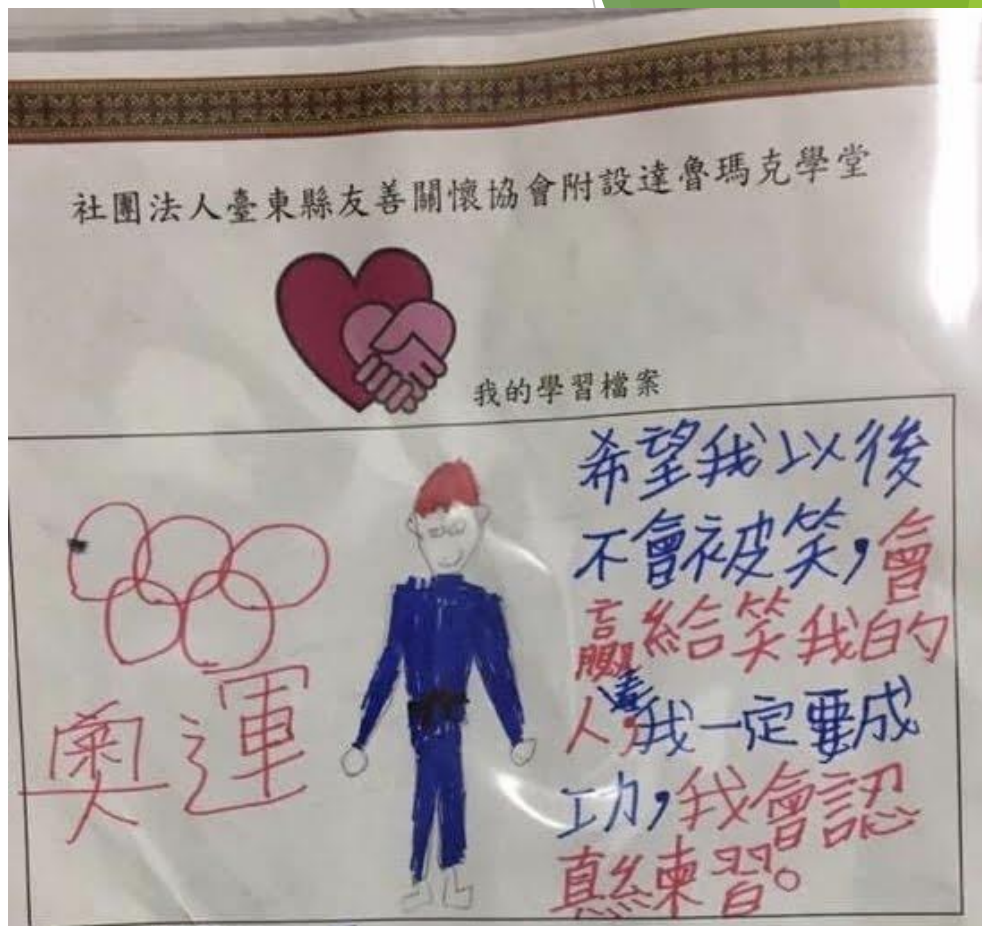 社團法人臺東縣友善關懷協會附設達魯瑪克學堂
我的學習檔案
奧運
希望我以後
不會被笑,會
贏給笑我的
人,我一定要成
功,我會認
真練習。